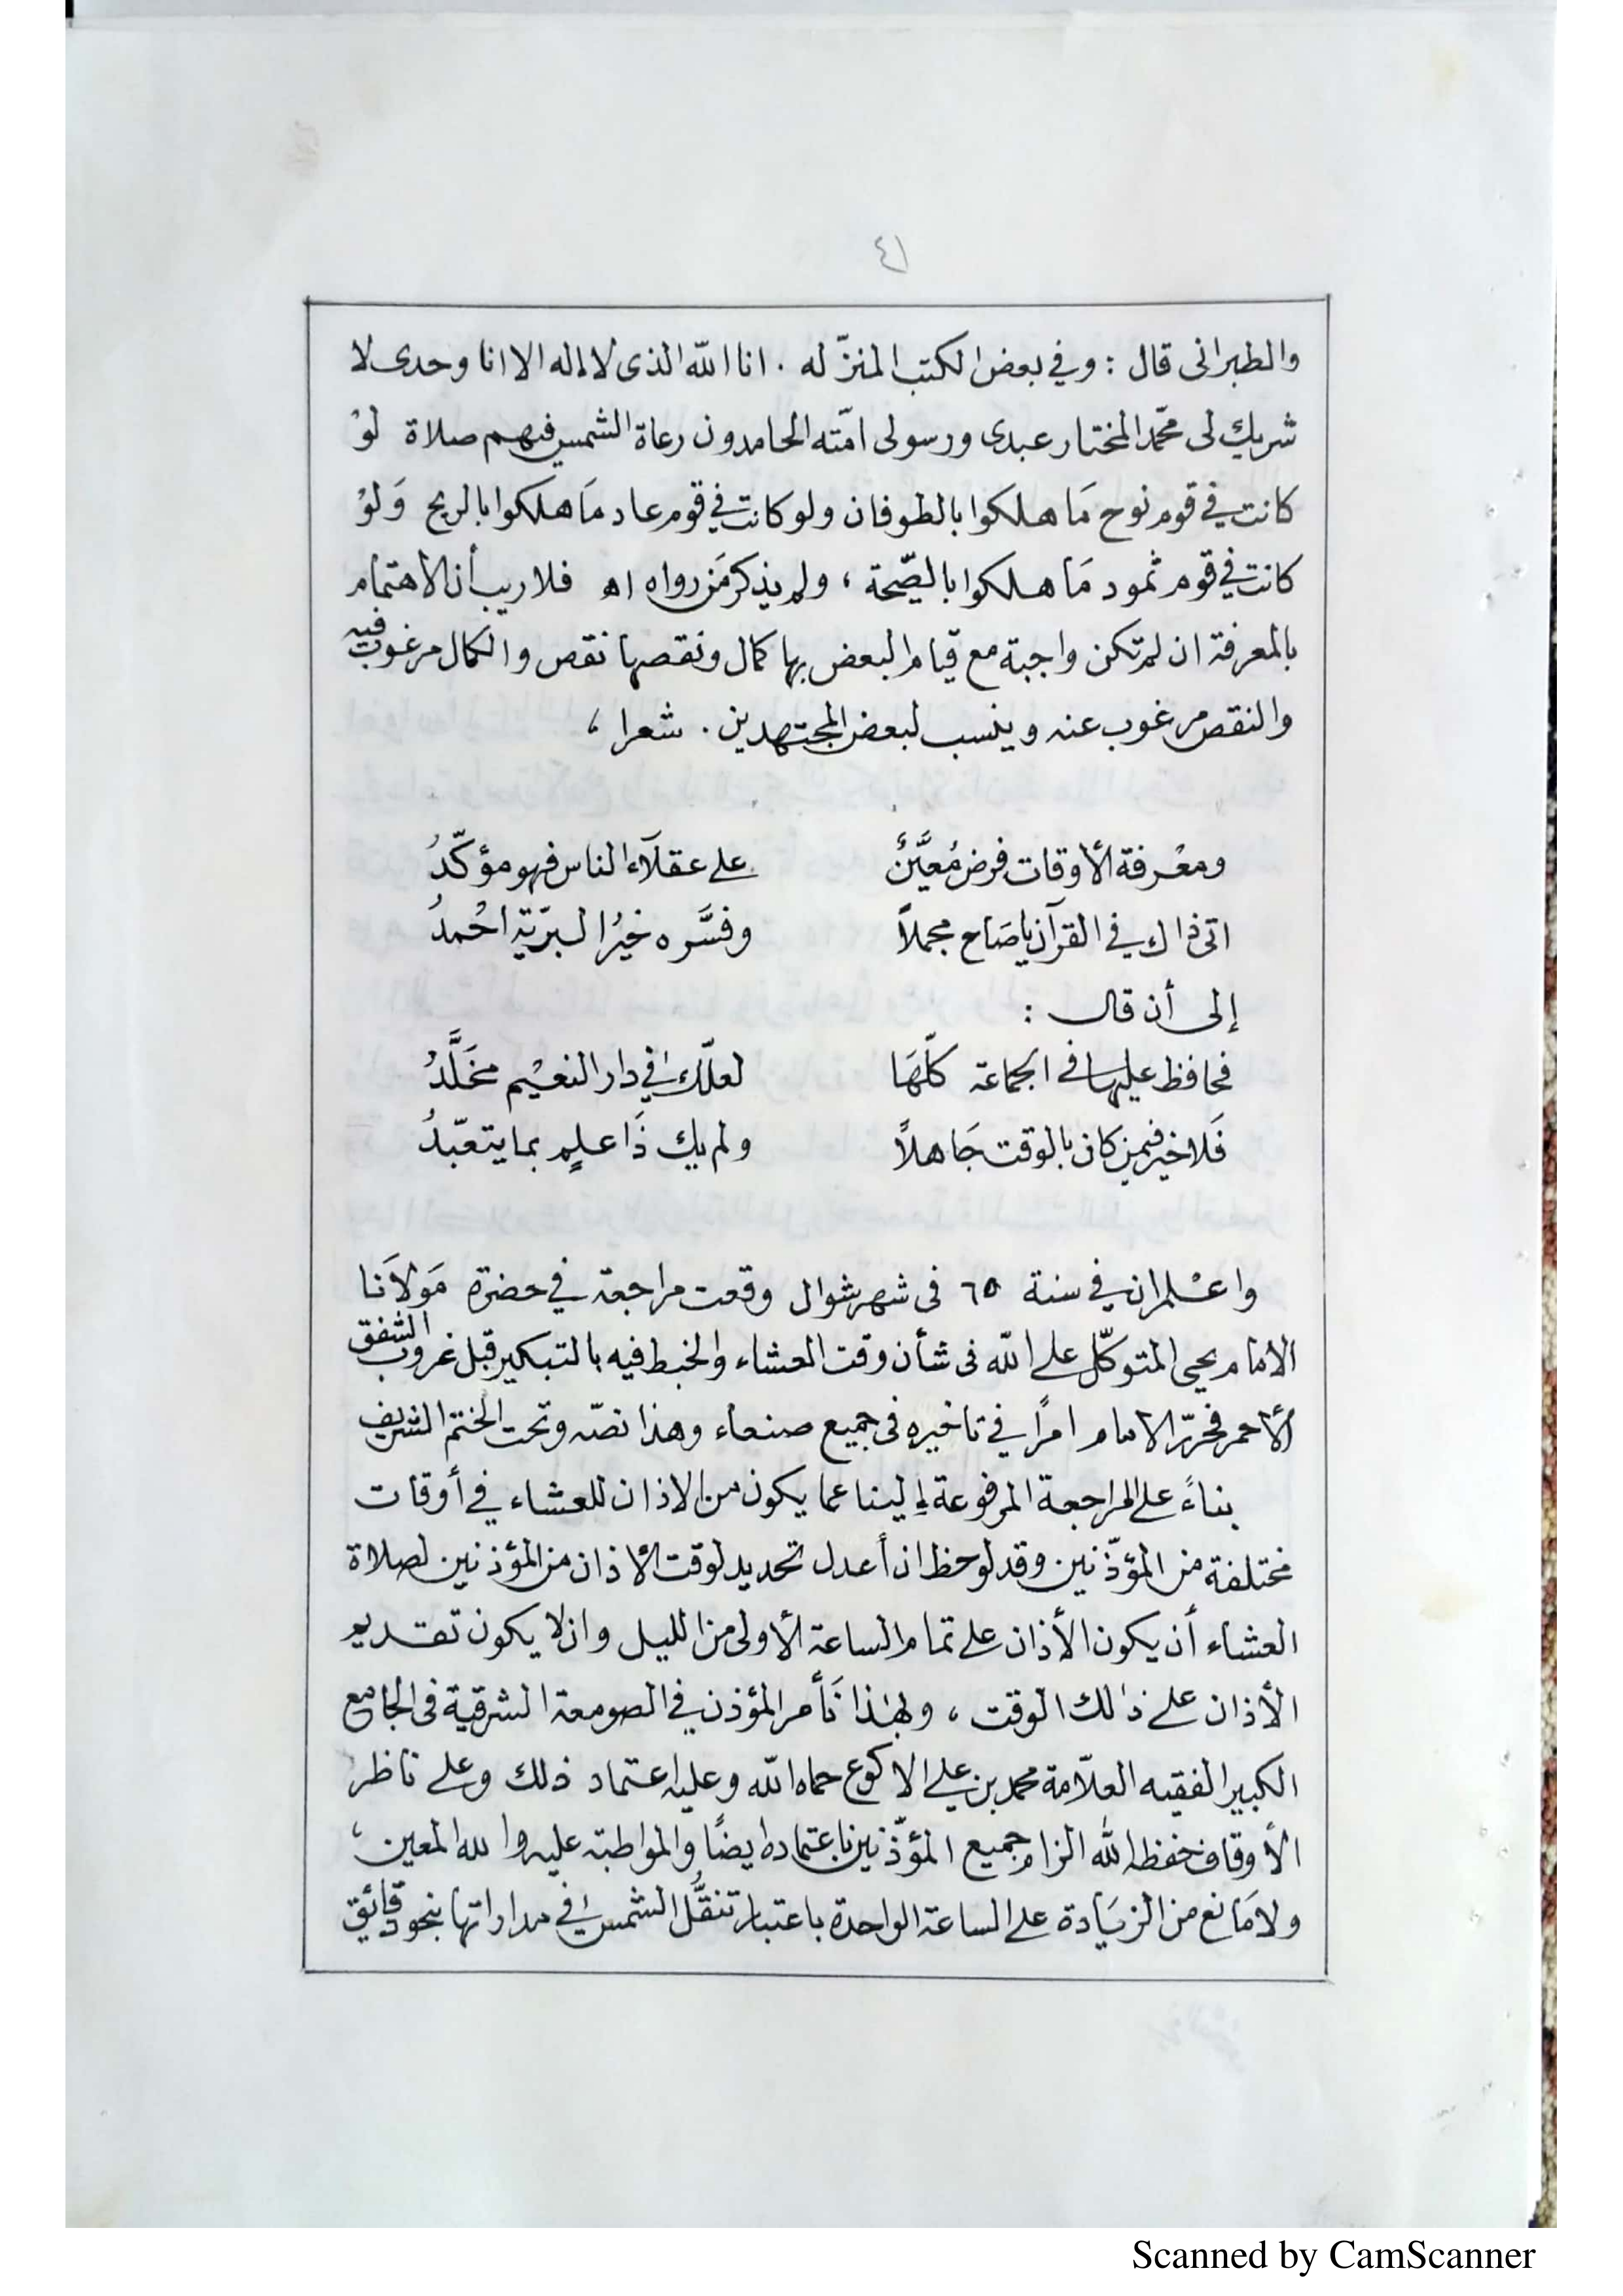 ٤١
والطبرانى قال : وفي بعض الكتب المنزّله . انا الله الذى لا اله الا انا وحدى لا
شريك لى محمّد المختار عبدى ورسولى امّته الحامدون رعاة الشمس فيهم صلاة لوْ
كانت في قوم نوح مَا هلكوا بالطوفان ولو كانت في قوم عاد مَا هلكوا بالريح وَلوْ
كانت في قوم ثمود مَا هلكوا بالصّيحة ، ولم يذكر مَن رواه اه فلا ريب أن الأهتمام
بالمعرفة ان لم تكن واجبة مع قيام البعض بها كمال ونقصها نقص والكمال مرغوب فيه
والنقص مرغوب عنه وينسب لبعض المجتهدين . شعرا ،
ومعْرفة الأوقات فرض مُعيَّنٌ على عقلآء الناس فهو مؤكّدُ
اتى ذاك في القرآن يا صَاح مجملاً وفسَّره خيْرُ البريّة احْمدُ
إلى أن قال :
فحافظ عليها في الجماعة كلّهَا لعلّك في دار النعيْم مخَلَّدُ
فَلا خير فيمن كان بالوقت جَاهلاً ولم يك ذَا علمٍ بما يتعبّدُ
واعْلم ان في سنة ٦٥ فى شهر شوال وقعت مراجعة في حضرة مَولاَنا
الامام يحيى المتوكّل على الله فى شأن وقت العشاء والخبط فيه بالتبكير قبل غروب الشفق
الأحمر فحرّر الامام امرًا في تاخيره فى جميع صنعاء وهذا نصّه وتحت الختم الشريف
بناءً على المراجعة المرفوعة إلينا عما يكون من الاذان للعشاء في أوقات
مختلفة من المؤذّنين وقد لوحظ ان أعدل تحديد لوقت الأذان من المؤذنين لصلاة
العشاء أن يكون الأذان على تمام الساعة الأولى من الليل وان لا يكون تقديم
الأذان على ذلك الوقت ، ولهذا نَأمر المؤذن في الصومعة الشرقية فى الجامع
الكبير الفقيه العلاّمة محمد بن علي الاكوع حماه الله وعليه اعتماد ذلك وعلى ناظر
الأوقاف حفظه الله الزام جميع المؤذّنين باعتماده ايضًا والمواظبة عليه والله المعين ،
ولا مَانع من الزيَادة على الساعة الواحدة باعتبار تنقُّل الشمس في مداراتها بنحو دقائق
Scanned by CamScanner